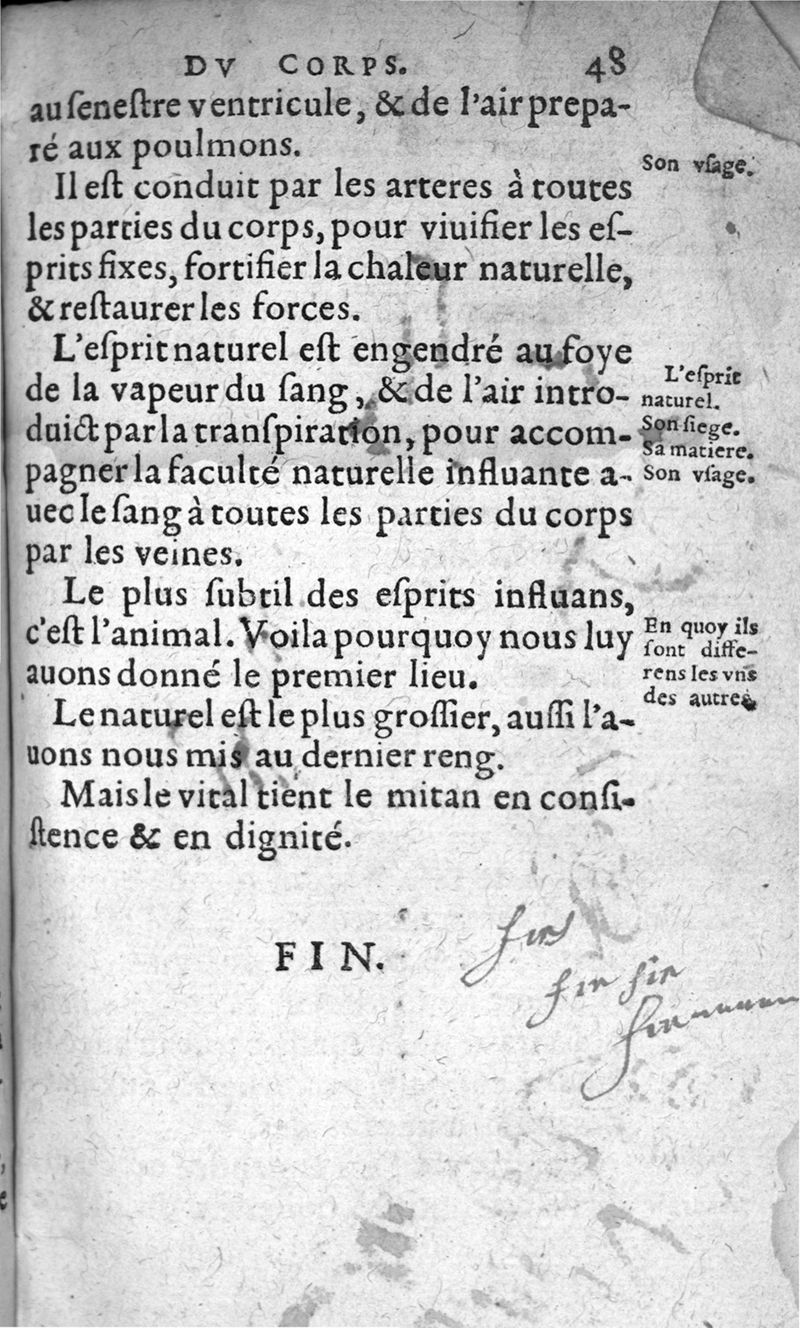 DV CORPS. 48
au ſeneſtre ventricule, & de l'air prepa-
ré aux poulmons.
Son vſage.
Il eſt conduit par les arteres à toutes
les parties du corps, pour viuifier les eſ-
prits fixes, fortifier la chaleur naturelle,
& reſtaurer les forces.
L'eſprit naturel eſt engendré au foye
de la vapeur du ſang, & de l'air intro-
duict par la tranſpiration, pour accom-
pagner la faculté naturelle influante a-
uec le ſang à toutes les parties du corps
par les veines.
L'eſprit
naturel.
Son ſiege.
Sa matiere.
Son vſage.
Le plus ſubtil des eſprits influans,
c'eſt l'animal. Voila pourquoy nous luy
auons donné le premier lieu.
En quoy ils
ſont diffe-
rens les vns
des autres.
Le naturel eſt le plus groſſier, auſſi l'a-
uons nous mis au dernier reng.
Mais le vital tient le mitan en conſi-
ſtence & en dignité.
FIN.